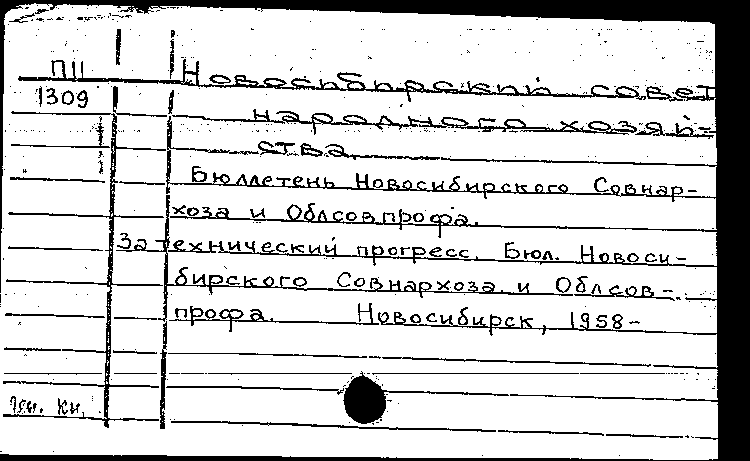 П11
1309
Новосибирский совет
народного хозяй=
ства.
Бюллетень Новосибирского Совнар-
хоза и Облсовпрофа.
За технический прогресс. Бюл. Новоси-
бирского Совнархоза и Облсов-
профа. Новосибирск, 1958-
кн.